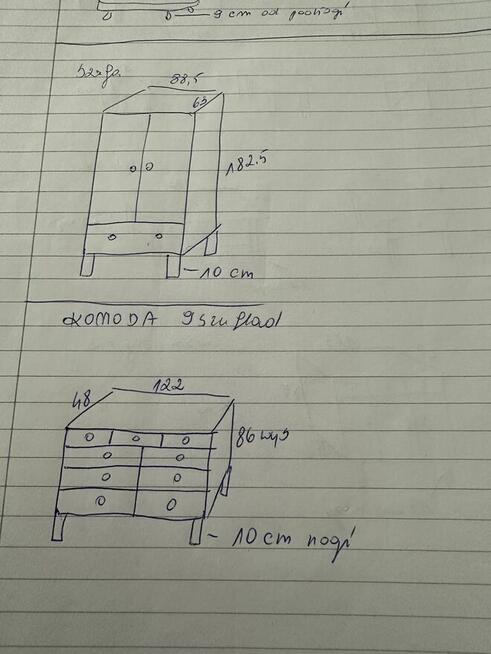 9 cm od podłogi
Szafa
88,5
63
182.5
10 cm
KOMODA 9 szuflad
48
122
86 wys
10 cm nogi